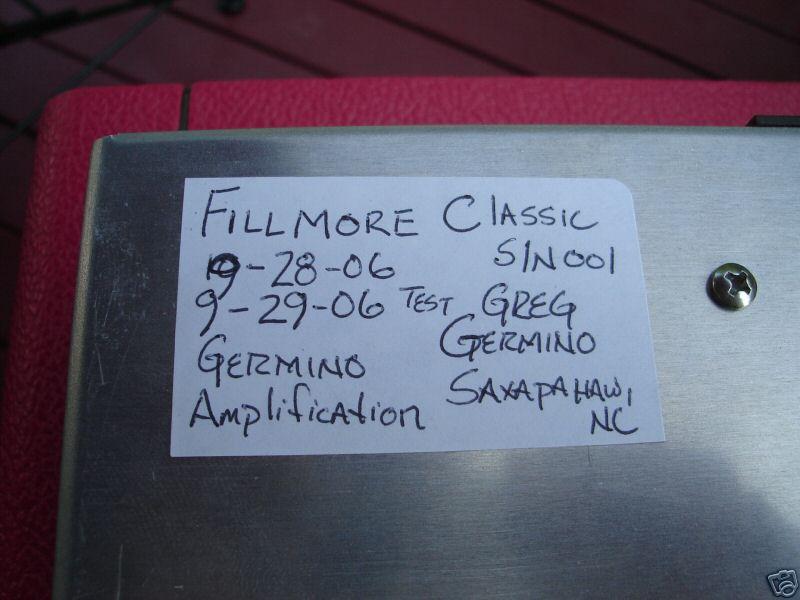 Fillmore Classic
9-28-06 S/N 001
9-29-06 Test Greg
Germino Germino
Amplification Saxapahaw,
NC